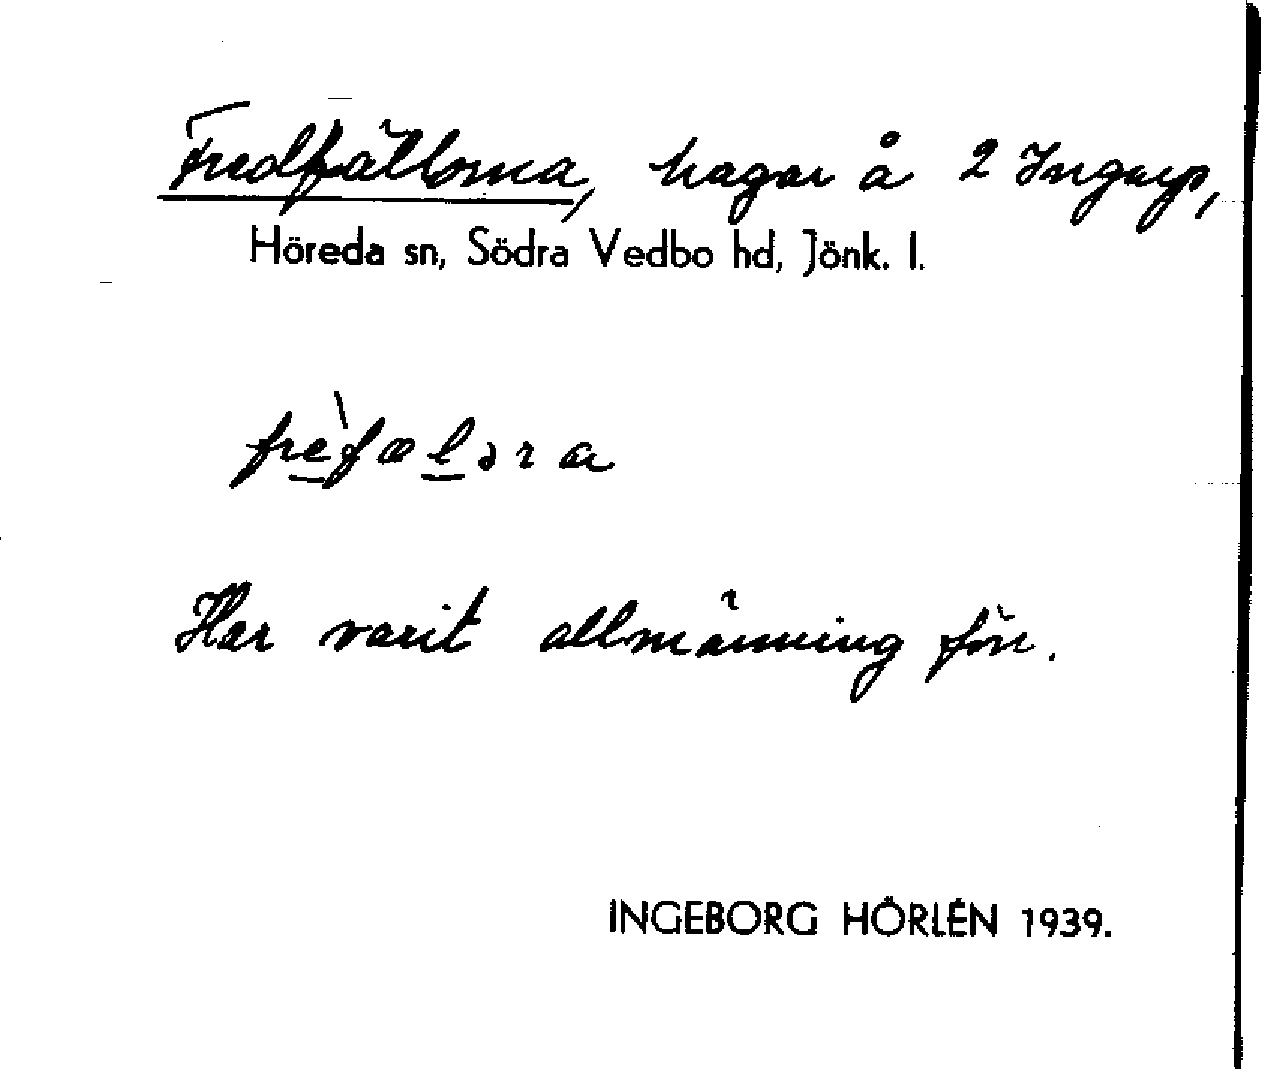 Fredfällorna, hagar å 2 Ingarp,
Höreda sn, Södra Vedbo hd, Jönk. l.
frèfælǝra
Har varit allmänning förr.
INGEBORG HÖRLÉN 1939.